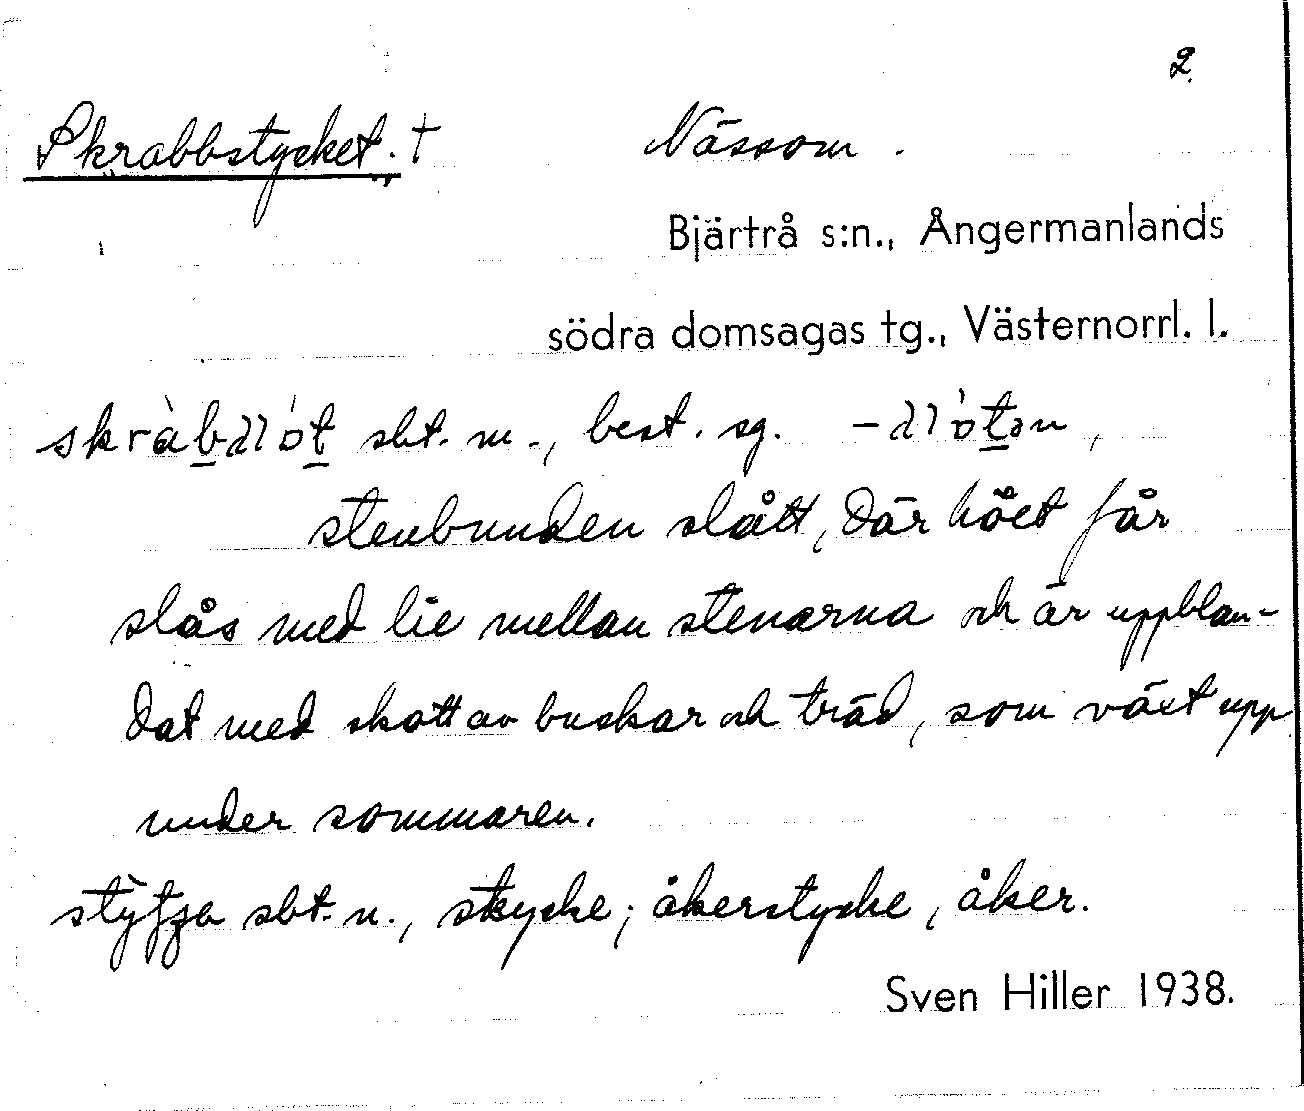 2.
Skrabbstycket. † Nässom.
Bjärtrå s:n., Ångermanlands
södra domsagas tg., Västernorrl. l.
sbt. m., best. sg.
stenbunden slått, där höet får
slås med lie mellan stenarna och är uppblan-
dat med skott av buskar och träd, som växt upp
under sommaren.
sbt. n., stycke; åkerstycke, åker.
Sven Hiller 1938.